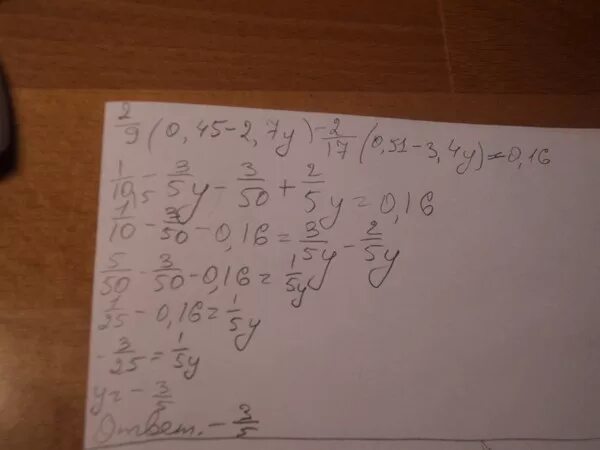 2/9 (0,45-2,7y) - 2/17 (0,51-3,4y) = 0,16
1/10 - 3/5y - 3/50 + 2/5y = 0,16
1/10 - 3/50 - 0,16 = 3/5y - 2/5y
5/50 - 3/50 - 0,16 = 1/5y
1/25 - 0,16 = 1/5y
- 3/25 = 1/5y
y = - 3/5
Ответ. - 3/5